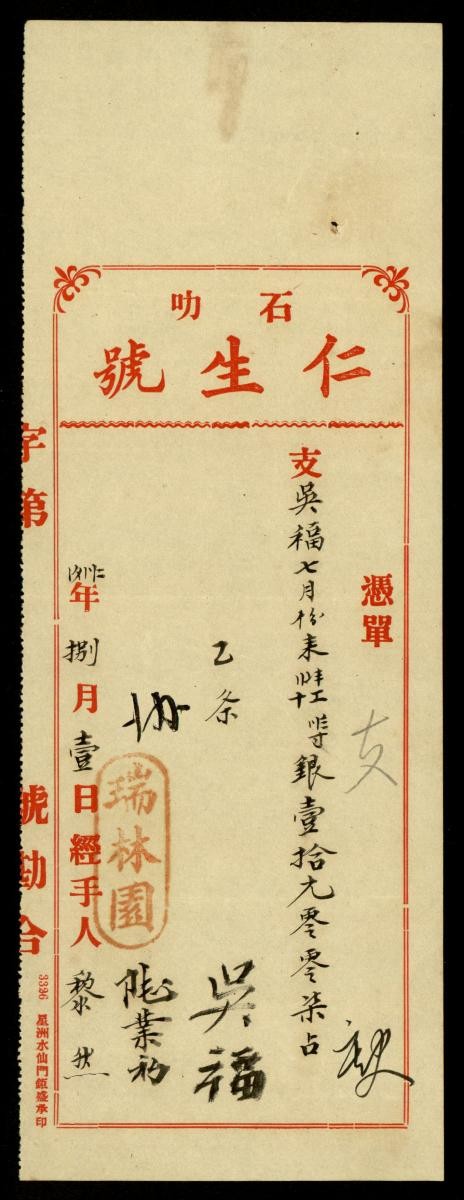 石叻
仁生號
憑單
支吳福七月份來
銀壹拾九零零柒占
支
乙条
吳福
瑞林園
年捌月壹日經手人黎
字第
號勘合
3396 星洲水仙門鉅盛承印